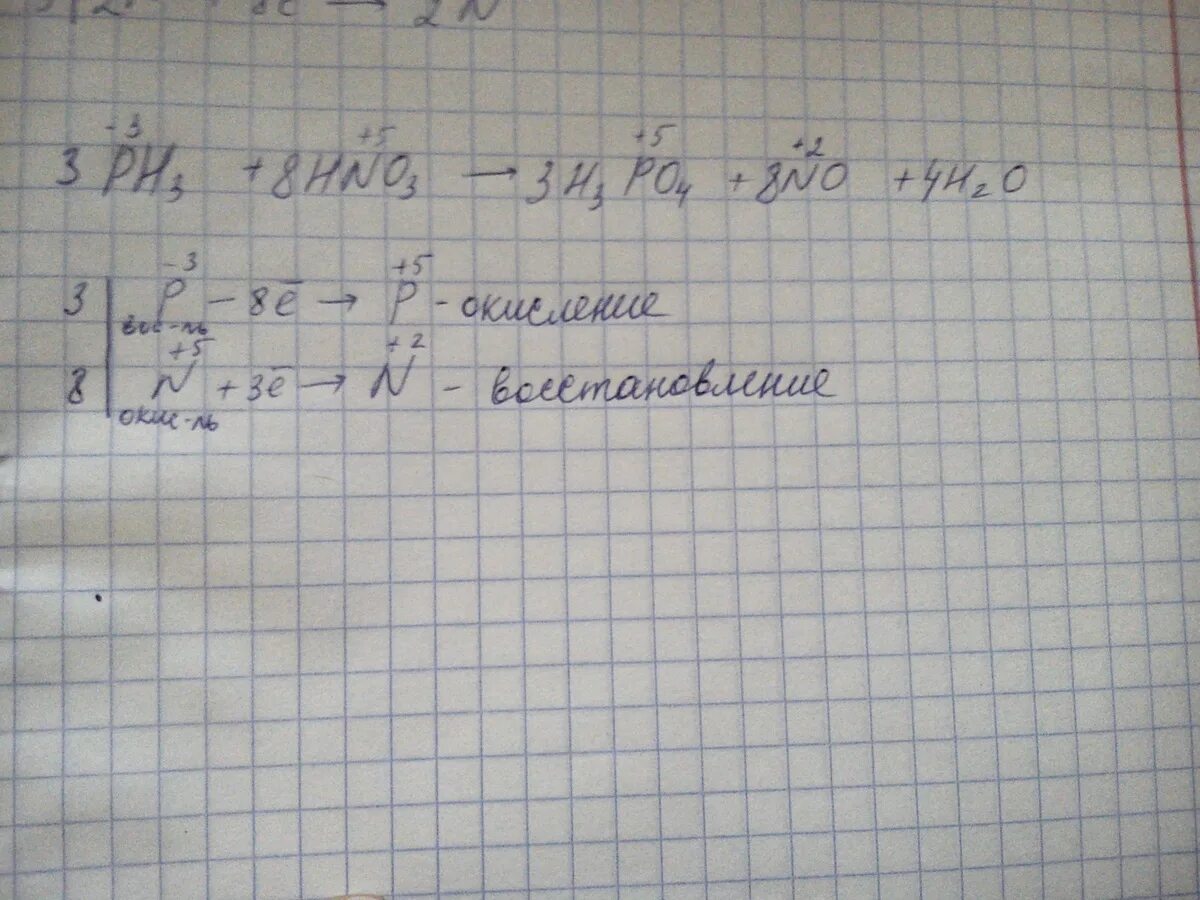 → 2N
-3 +5 +5 +2
3PH₃ + 8HNO₃ → 3H₃PO₄ + 8NO + 4H₂O
-3 +5
3 | P - 8ē → P - окисление
вос-ль
+5 +2
8 | N + 3ē → N - восстановление
окис-ль